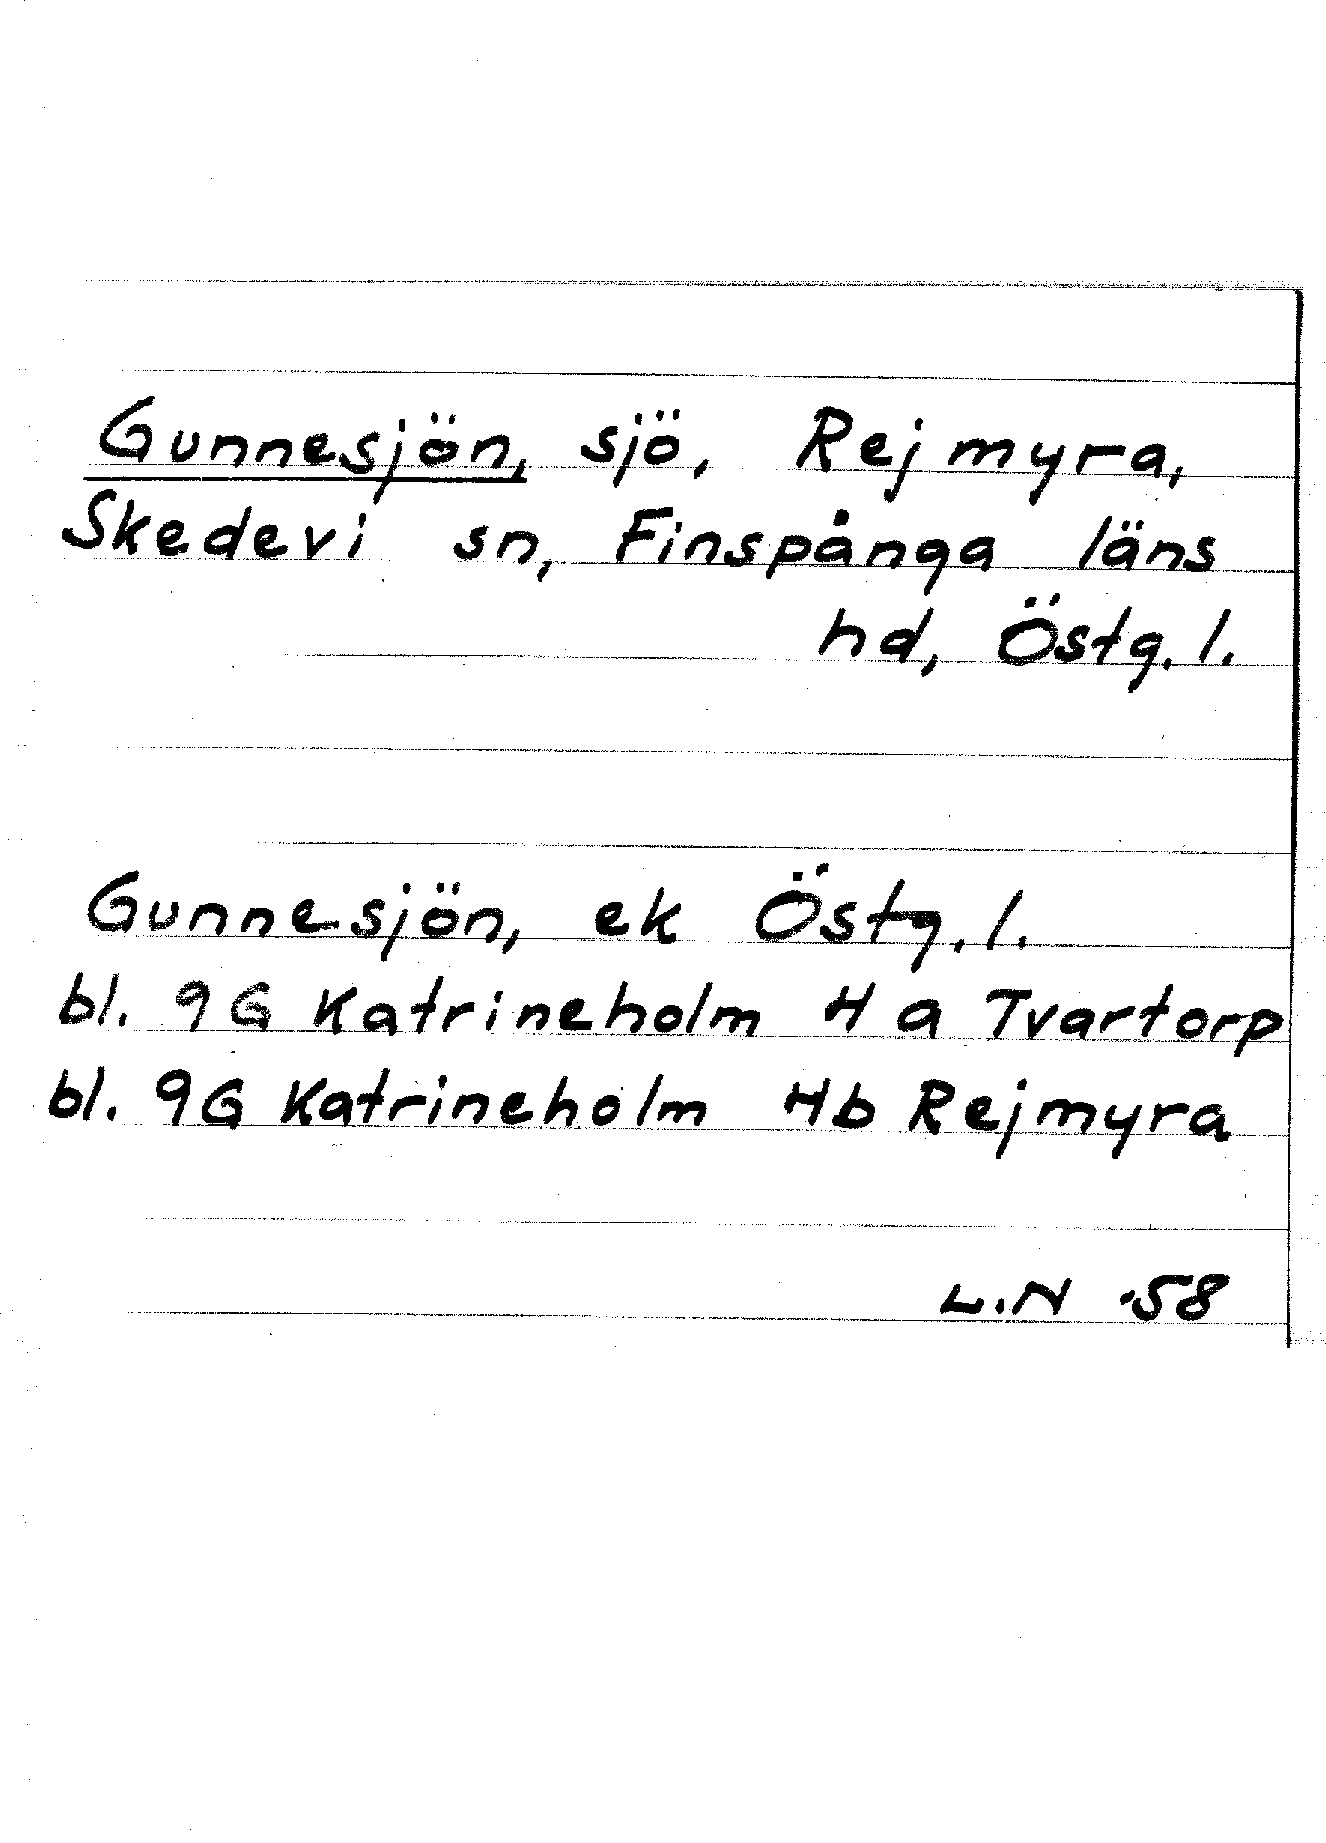 Gunnesjön, sjö, Rejmyra,
Skedevi sn, Finspånga läns
hd, Östg. l.
Gunnesjön, ek Östg. l.
bl. 9G Katrineholm H a Tvartorp
bl. 9G Katrineholm Hb Rejmyra
L.N -58